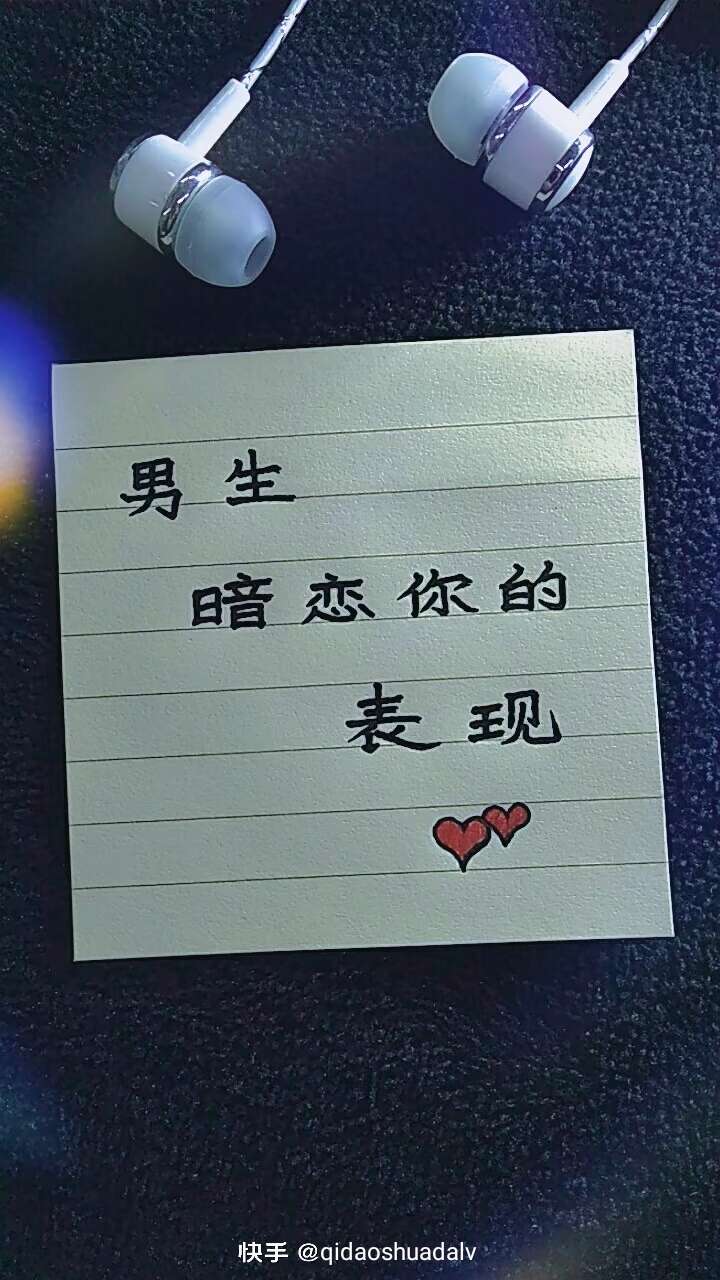 男生
暗恋你的
表现
快手 @qidaoshuadalv